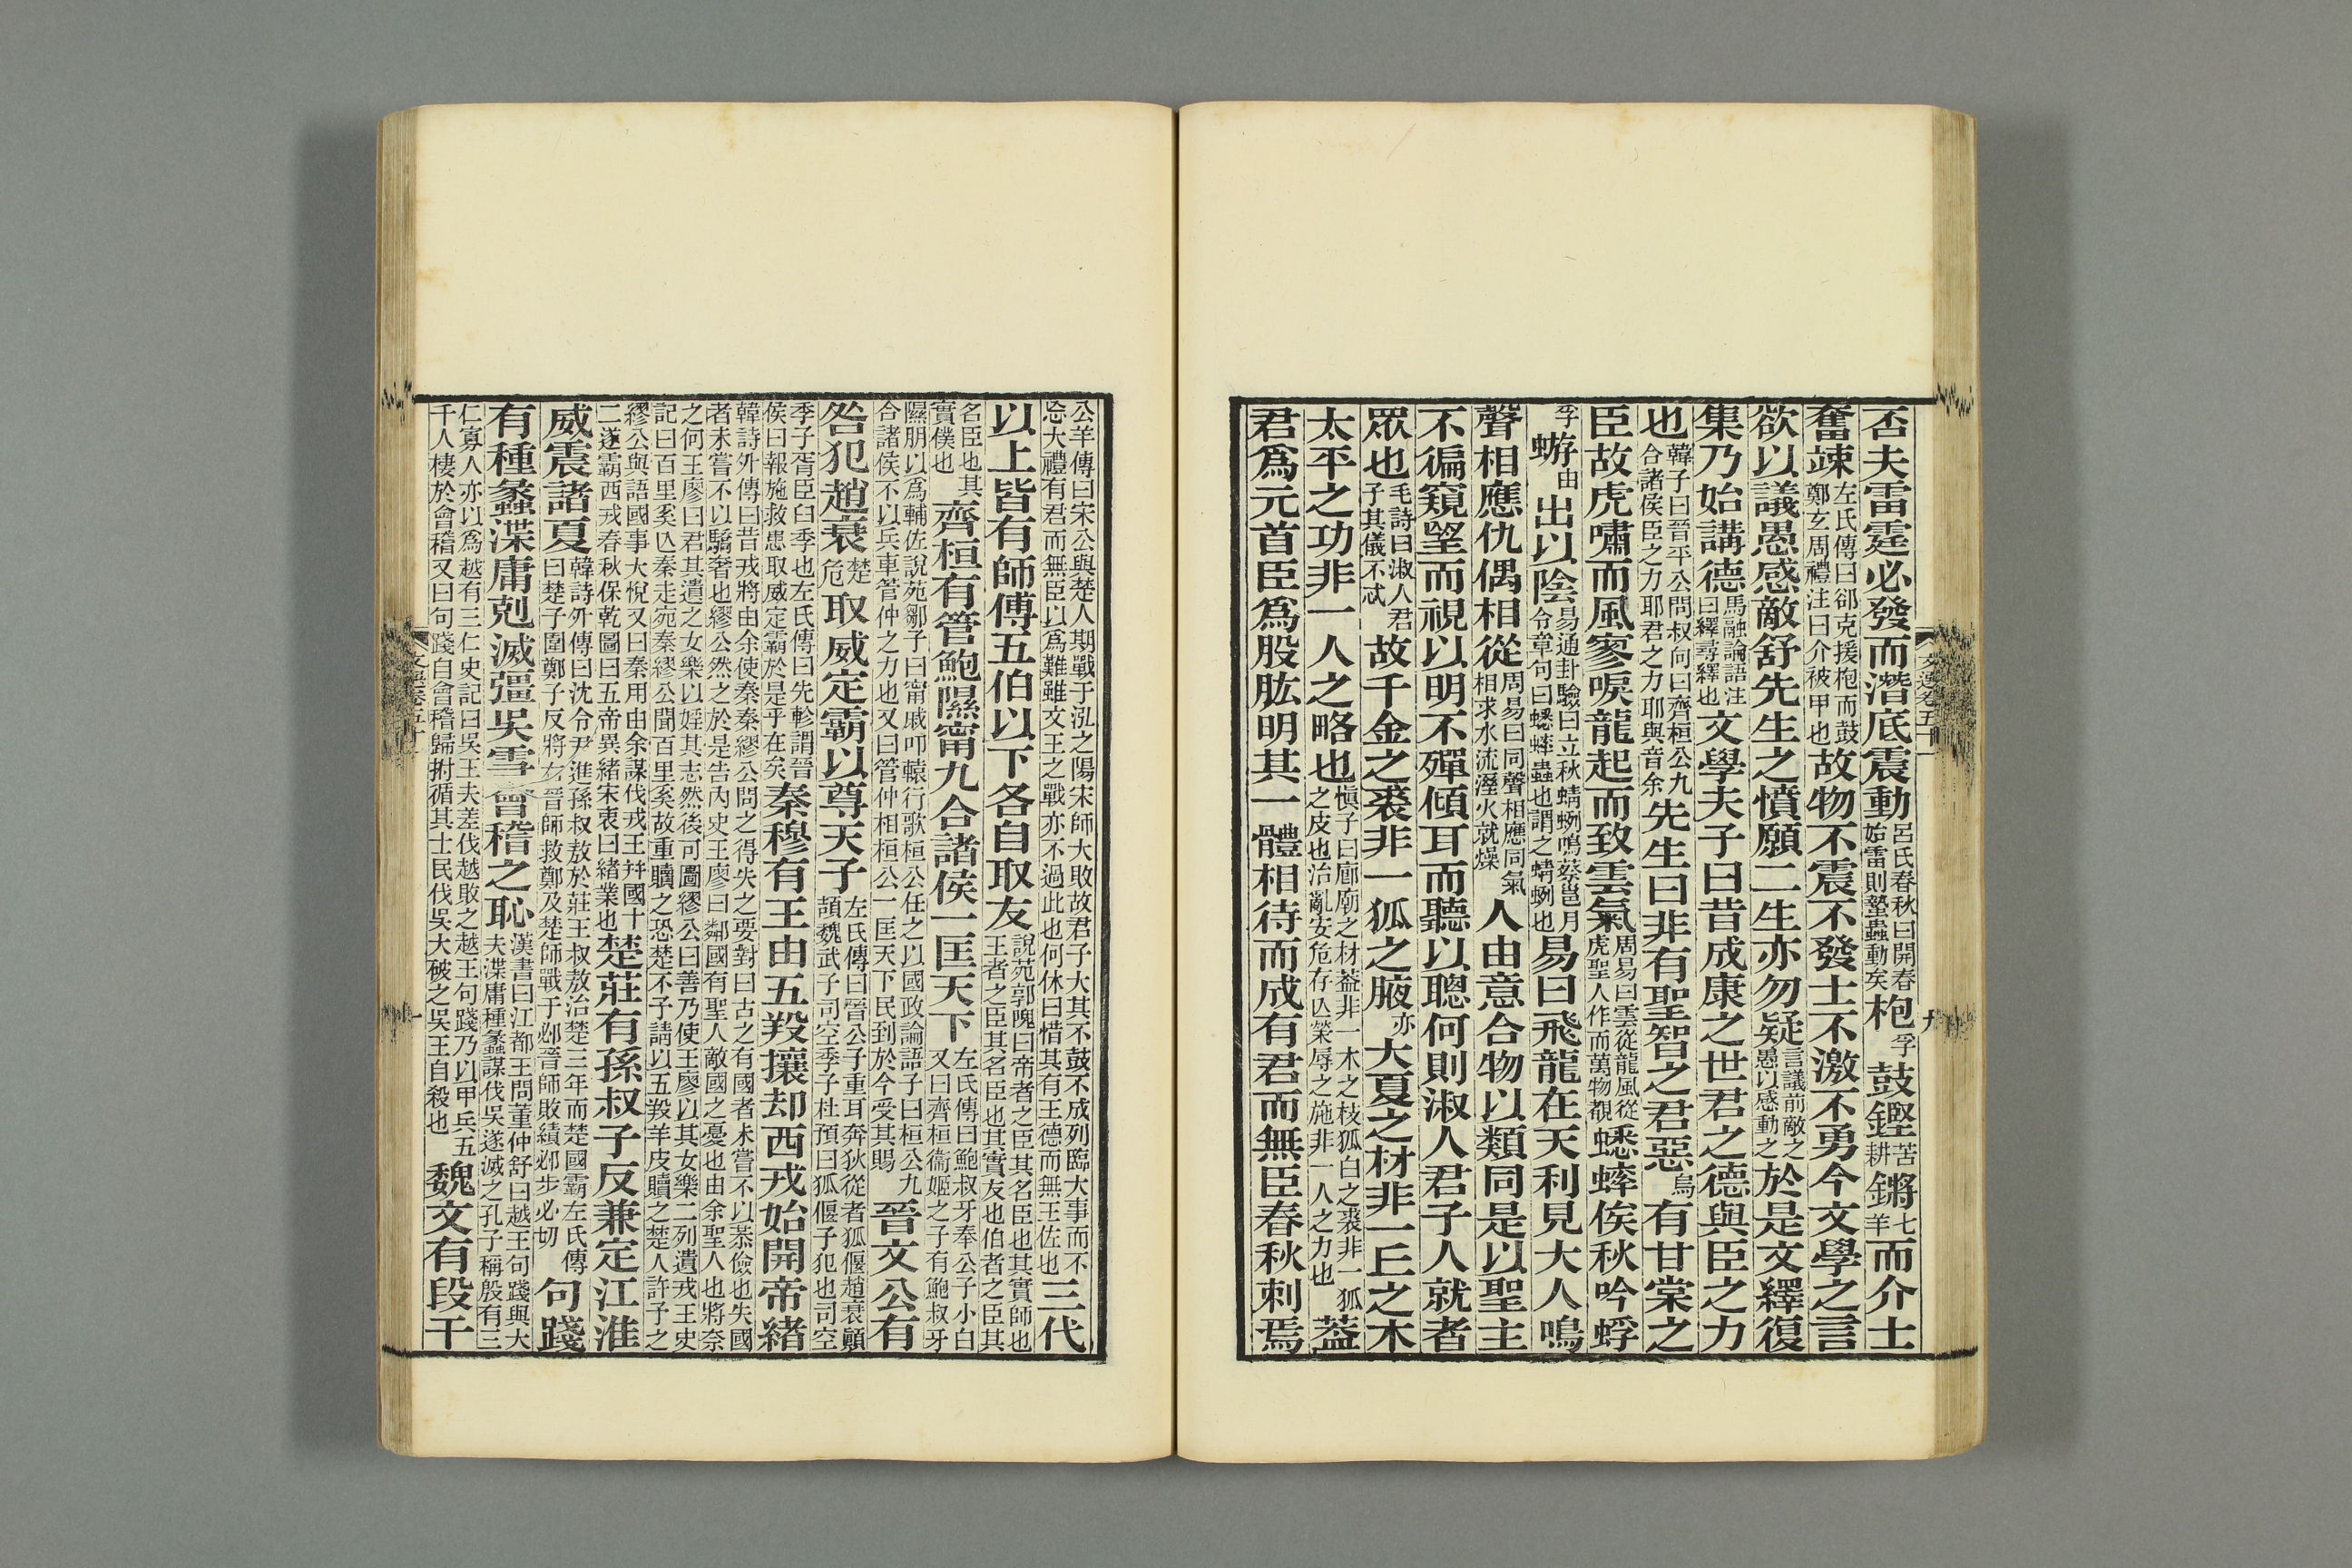 否夫雷霆必發而潛底震動呂氏春秋曰開春始雷則蟄蟲動矣枹孚鼓鏗苦耕鏘七羊而介士
奮竦左氏傳曰郤克援枹而鼓鄭玄周禮注曰介被甲也故物不震不發士不激不勇今文學之言
欲以議愚感敵舒先生之憤願二生亦勿疑言議前敵之愚以感動之於是文繹復
集乃始講德馬融論語注曰繹尋繹也文學夫子曰昔成康之世君之德與臣之力
也韓子曰晉平公問叔向曰齊桓公九合諸侯臣之力耶君之力耶與音余先生曰非有聖智之君惡烏有甘棠之
臣故虎嘯而風寥唳龍起而致雲氣周易曰雲從龍風從虎聖人作而萬物覩蟋蟀俟秋吟蜉
孚蝣由出以陰易通卦驗曰立秋蜻蛚鳴蔡邕月令章句曰蟋蟀蟲也謂之蜻蛚也易曰飛龍在天利見大人鳴
聲相應仇偶相從周易曰同聲相應同氣相求水流溼火就燥人由意合物以類同是以聖主
不徧窺望而視以明不殫傾耳而聽以聰何則淑人君子人就者
眾也毛詩曰淑人君子其儀不忒故千金之裘非一狐之腋亦大夏之材非一丘之木
太平之功非一人之略也慎子曰廊廟之材葢非一木之枝狐白之裘非一狐之皮也治亂安危存亾榮辱之施非一人之力也葢
君爲元首臣爲股肱明其一體相待而成有君而無臣春秋刺焉
公羊傳曰宋公與楚人期戰于泓之陽宋師大敗故君子大其不鼓不成列臨大事而不忘大禮有君而無臣以爲難雖文王之戰亦不過此也何休曰惜其有王德而無王佐也三代
以上皆有師傅五伯以下各自取友說苑郭隗曰帝者之臣其名臣也其實師也王者之臣其名臣也其實友也伯者之臣其
名臣也其實僕也齊桓有管鮑隰甯九合諸侯一匡天下左氏傳曰鮑叔牙奉公子小白又曰齊桓衞姬之子有鮑叔牙
隰朋以爲輔佐說苑鄒子曰甯戚叩轅行歌桓公任之以國政論語子曰桓公九合諸侯不以兵車管仲之力也又曰管仲相桓公一匡天下民到於今受其賜晉文公有
咎犯趙衰楚危取威定霸以尊天子左氏傳曰晉公子重耳奔狄從者狐偃趙衰顚頡魏武子司空季子杜預曰狐偃子犯也司空
季子胥臣臼季也左氏傳曰先軫謂晉侯曰報施救患取威定霸於是乎在矣秦穆有王由五羖攘却西戎始開帝緒
韓詩外傳曰昔戎將由余使秦秦繆公問之得失之要對曰古之有國者未嘗不以恭儉也失國者未嘗不以驕奢也繆公然之於是告內史王廖曰鄰國有聖人敵國之憂也由余聖人也將奈
之何王廖曰君其遺之女樂以婬其志然後可圖繆公曰善乃使王廖以其女樂二列遺戎王史記曰百里奚亾秦走宛秦繆公聞百里奚故重贖之恐楚不予請以五羖羊皮贖之楚人許予之
繆公與語國事大悅又曰秦用由余謀伐戎王幷國十二遂霸西戎春秋保乾圖曰五帝異緒宋衷曰緒業也楚莊有孫叔子反兼定江淮
威震諸夏韓詩外傳曰沈令尹進孫叔敖於莊王叔敖治楚三年而楚國霸左氏傳曰楚子圍鄭子反將右晉師救鄭及楚師戰于邲晉師敗績邲步必切句踐
有種蠡渫庸剋滅彊吳雪會稽之恥漢書曰江都王問董仲舒曰越王句踐與大夫渫庸種蠡謀伐吳遂滅之孔子稱殷有三
仁寡人亦以爲越有三仁史記曰吳王夫差伐越敗之越王句踐乃以甲兵五千人棲於會稽又曰句踐自會稽歸拊循其士民伐吳大破之吳王自殺也魏文有段干